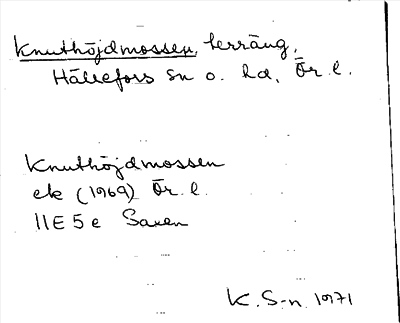 Knuthöjdmossen, terräng,
Hällefors sn o. hd, Ör. l.
Knuthöjdmossen
ek (1969) Ör. l.
11E 5 e Saxen
K. S-n. 1971